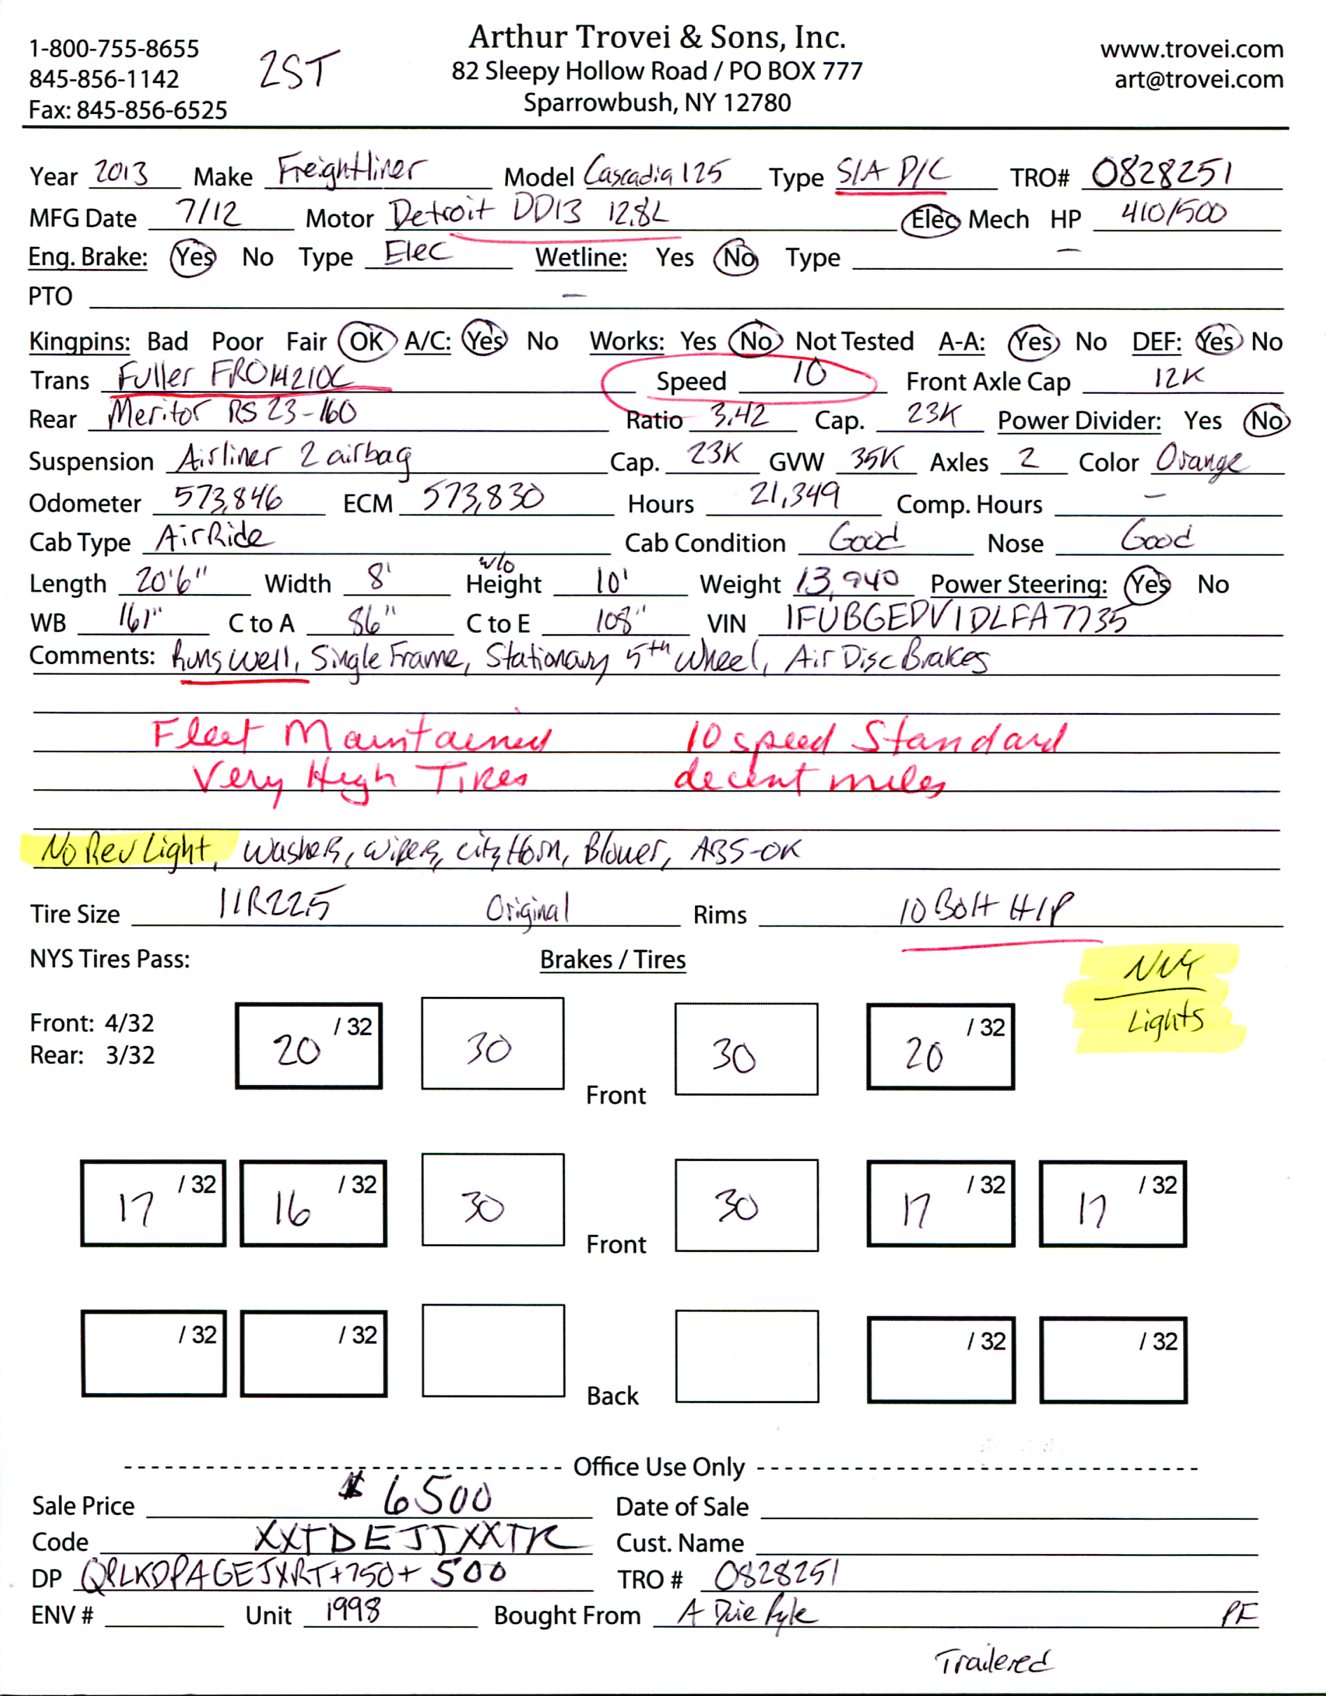 Arthur Trovei & Sons, Inc.
1-800-755-8655 2ST 82 Sleepy Hollow Road / PO BOX 777 www.trovei.com
845-856-1142 Sparrowbush, NY 12780 art@trovei.com
Fax: 845-856-6525
Year 2013 Make Freightliner Model Cascadia 125 Type S/A D/C TRO# 0828251
MFG Date 7/12 Motor Detroit DD13 12.8L Elec Mech HP 410/500
Eng. Brake: Yes No Type Elec Wetline: Yes No Type —
PTO —
Kingpins: Bad Poor Fair OK A/C: Yes No Works: Yes No Not Tested A-A: Yes No DEF: Yes No
Trans Fuller FRO14210C Speed 10 Front Axle Cap 12K
Rear Meritor RS 23-160 Ratio 3.42 Cap. 23K Power Divider: Yes No
Suspension Airliner 2 airbag Cap. 23K GVW 35K Axles 2 Color Orange
Odometer 573,846 ECM 573,830 Hours 21,349 Comp. Hours —
Cab Type Air Ride Cab Condition Good Nose Good
Length 20'6" Width 8' w/o Height 10' Weight 13,940 Power Steering: Yes No
WB 161" C to A 86" C to E 108" VIN 1FUBGEDV1DLFA7735
Comments: Runs well, Single Frame, Stationary 5th Wheel, Air Disc Brakes
Fleet Maintained 10 speed Standard
Very High Tires decent miles
No Rev Light, washer, wiper, city Horn, Blower, ABS-OK
Tire Size 11R22.5 Original Rims 10 Bolt H/P
NYS Tires Pass: Brakes / Tires
Lights
Front: 4/32 20 /32 30 30 20 /32
Rear: 3/32
Front
17 /32 16 /32 30 30 17 /32 17 /32
Front
/32 /32 /32 /32
Back
Office Use Only
Sale Price $6500 Date of Sale
Code XXTDEJJXXTR Cust. Name
DP QRLKDPAGEJXRT+750+ 500 TRO # 0828251
ENV # Unit 1998 Bought From A Duie Pyle PF
Trailered